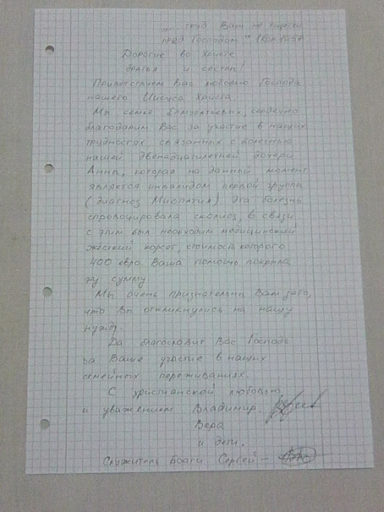 "... труд Ваш не тщетен
пред Господом" 1Кор 15:58
Дорогие во Христе
братья и сестры!
Приветствуем Вас любовью Господа
нашего Иисуса Христа.
Мы семья, сердечно
благодарим Вас за участие в наших
трудностях связанных с болезнью
нашей двенадцатилетней дочери
Анны, которая на данный момент
является инвалидом первой группы
(диагноз Миопатия). Эта болезнь
спровоцировала сколиоз, в связи
с этим был необходим медицинский
жесткий корсет, стоимость которого
400 евро. Ваша помощь покрыла
эту сумму.
Мы очень признательны Вам за то,
что Вы откликнулись на нашу
нужду.
Да благословит Вас Господь
за Ваше участие в наших
семейных переживаниях.
С христианской любовью
и уважением Владимир.
Вера
и дети.
Служитель Сергей –